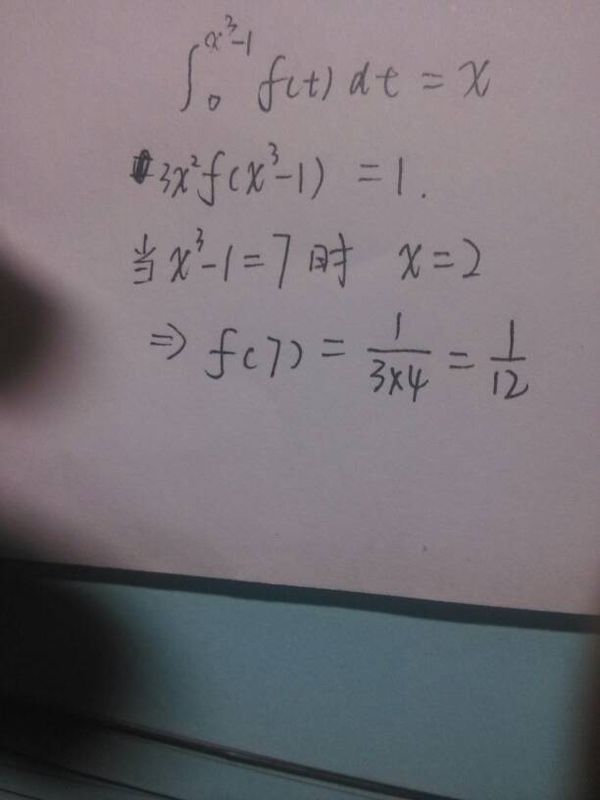 ∫₀^{x³-1} f(t) dt = x
3x²f(x³-1) = 1.
当 x³-1=7 时 x=2
⇒ f(7) = \frac{1}{3×4} = \frac{1}{12}